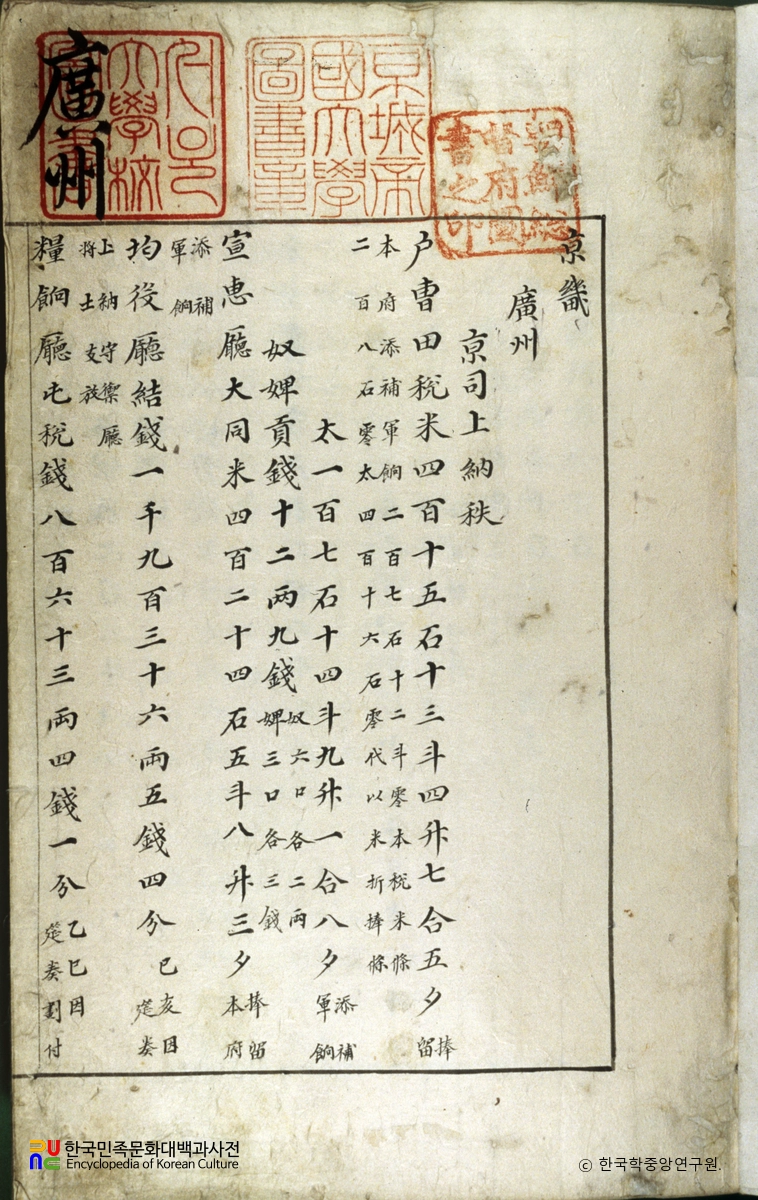 廣州
서울大學校圖書
京城帝國大學圖書章
朝鮮總督府圖書之印
京畿
廣州
京司上納秩
戶曹田稅米四百十五石十三斗四升七合五夕
捧
留
本府添補軍餉二百七石十二斗零本稅米條
二百八石零太四百十六石零代以米折捧條
太一百七石十四斗九升一合八夕
添補
軍餉
奴婢貢錢十二兩九錢
奴六口各二兩
婢三口各三錢
宣惠廳大同米四百二十四石五斗八升三夕
捧留
本府
添補
軍餉
均役廳結錢一千九百三十六兩五錢四分
己亥因
筵奏
上納守禦廳
將士支放
糧餉廳屯稅錢八百六十三両四錢一分
乙巳因
筵奏劃付
한국민족문화대백과사전
Encyclopedia of Korean Culture
ⓒ 한국학중앙연구원.